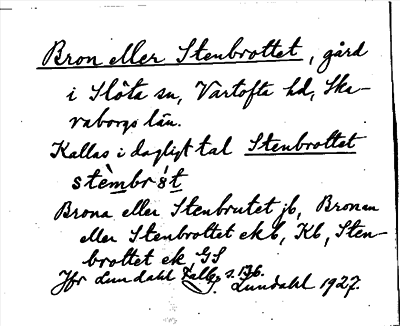 Bron eller Stenbrottet, gård
i Slöta sn, Vartofta hd, Ska-
raborgs län.
Kallas i dagligt tal Stenbrottet
stèmbrʹt
Brona eller Stenbrutet jb, Bronan
eller Stenbrottet ekb, Kb, Sten-
brottet ek, GS
Jfr Lundahl Falb. s. 136.
Lundahl 1927.